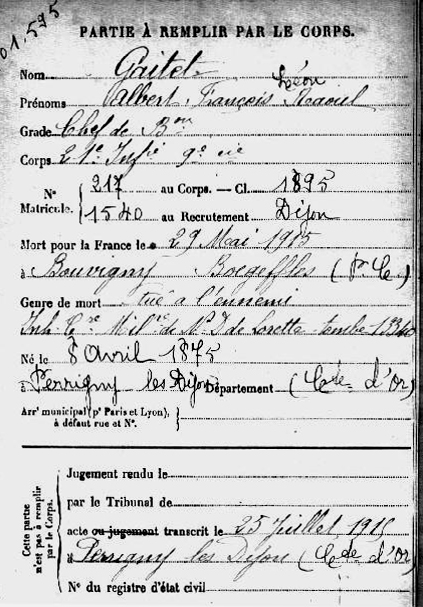 01.595
PARTIE À REMPLIR PAR LE CORPS.
Nom Gaitet
Léon
Prénoms Albert, François Raoul
Grade Chef de Bon
Corps 21e Infie 9e cie
No Matricule. 217 au Corps. — Cl. 1895
1540 au Recrutement Dijon
Mort pour la France le 29 Mai 1915
à Bouvigny Boyeffles (P. C.)
Genre de mort tué à l'ennemi
Inh. Cre Milre de N. D. de Lorette tombe 13340
Né le 8 Avril 1875
à Perrigny les Dijon Département (Côte d'Or)
Arrt municipal (pr Paris et Lyon), à défaut rue et No.
Cette partie n'est pas à remplir par le Corps.
Jugement rendu le
par le Tribunal de
acte ou jugement transcrit le 25 Juillet 1915
à Perrigny les Dijon (Côte d'Or)
No du registre d'état civil